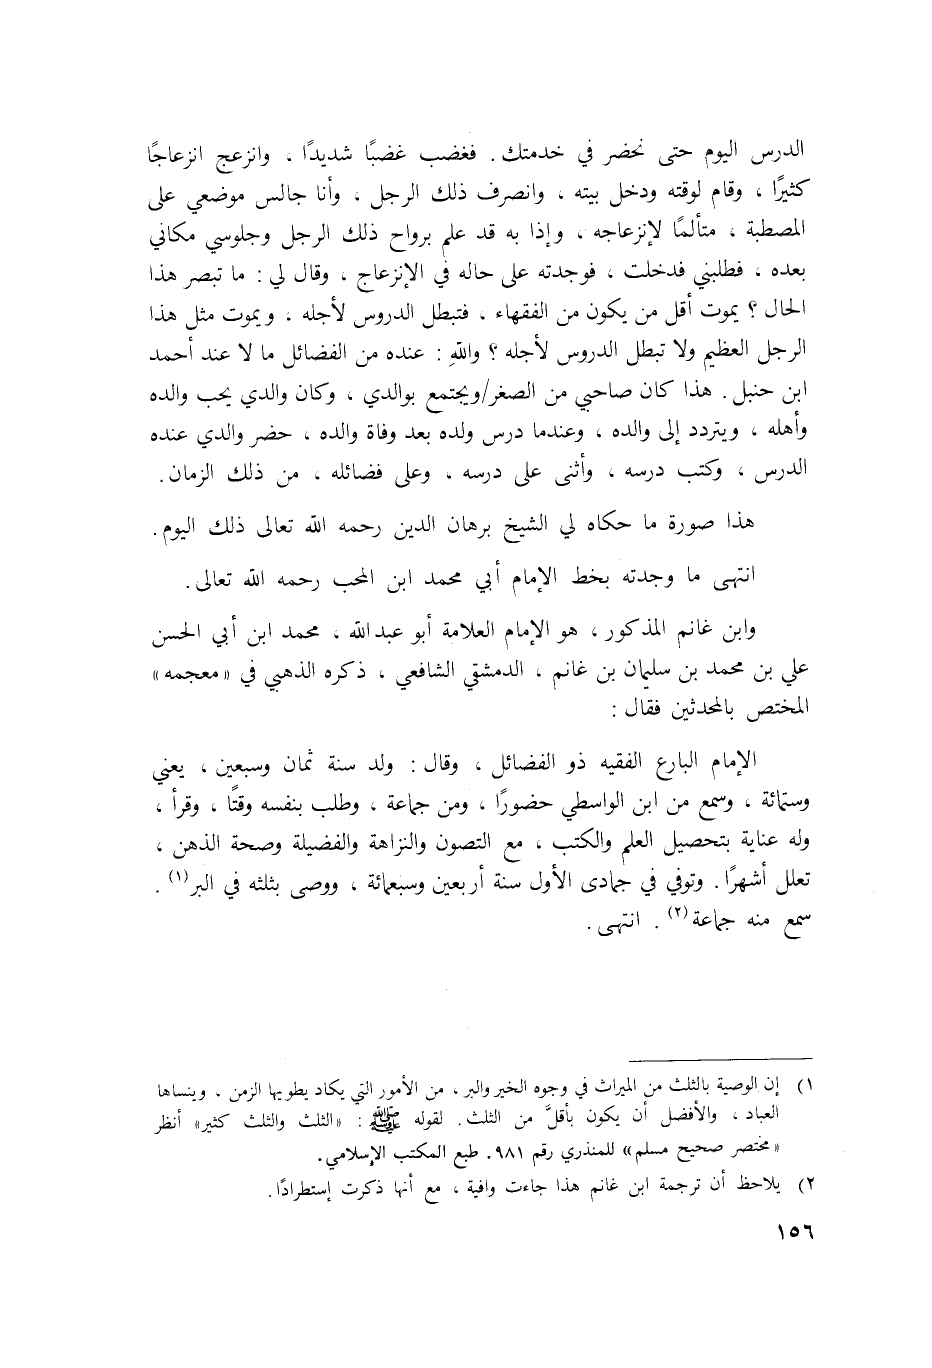 الدرس اليوم حتى نحضر في خدمتك. فغضب غضبًا شديدًا ، وانزعج انزعاجًا
كثيرًا ، وقام لوقته ودخل بيته ، وانصرف ذلك الرجل ، وأنا جالس موضعي على
المصطبة ، متألمًا لإنزعاجه ، وإذا به قد علم برواح ذلك الرجل وجلوسي مكاني
بعده ، فطلبني فدخلت ، فوجدته على حاله في الإنزعاج ، وقال لي : ما تبصر هذا
الحال ؟ يموت أقل من يكون من الفقهاء ، فتبطل الدروس لأجله ، ويموت مثل هذا
الرجل العظيم ولا تبطل الدروس لأجله ؟ واللهِ : عنده من الفضائل ما لا عند أحمد
ابن حنبل . هذا كان صاحبي من الصغر/ويجتمع بوالدي ، وكان والدي يحب والده
وأهله ، ويتردد إلى والده ، وعندما درس ولده بعد وفاة والده ، حضر والدي عنده
الدرس ، وكتب درسه ، وأثنى على درسه ، وعلى فضائله ، من ذلك الزمان.
هذا صورة ما حكاه لي الشيخ برهان الدين رحمه الله تعالى ذلك اليوم.
انتهى ما وجدته بخط الإمام أبي محمد ابن المحب رحمه الله تعالى.
وابن غانم المذكور ، هو الإمام العلامة أبو عبدالله ، محمد ابن أبي الحسن
علي بن محمد بن سليمان بن غانم ، الدمشقي الشافعي ، ذكره الذهبي في «معجمه»
المختص بالمحدثين فقال :
الإمام البارع الفقيه ذو الفضائل ، وقال : ولد سنة ثمان وسبعين ، يعني
وستمائة ، وسمع من ابن الواسطي حضورًا ، ومن جماعة ، وطلب بنفسه وقتًا ، وقرأ ،
وله عناية بتحصيل العلم والكتب ، مع التصون والنزاهة والفضيلة وصحة الذهن ،
تعلل أشهرًا. وتوفي في جمادى الأول سنة أربعين وسبعمائة ، ووصى بثلثه في البر(١) .
سمع منه جماعة(٢) . انتهى.
١) إن الوصية بالثلث من الميراث في وجوه الخير والبر ، من الأمور التي يكاد يطويها الزمن ، وينساها
العباد ، والأفضل أن يكون بأقلَّ من الثلث. لقوله ﷺ : «الثلث والثلث كثير» أنظر
«مختصر صحيح مسلم» للمنذري رقم ٩٨١. طبع المكتب الإسلامي.
٢) يلاحظ أن ترجمة ابن غانم هذا جاءت وافية ، مع أنها ذكرت إستطرادًا.
١٥٦